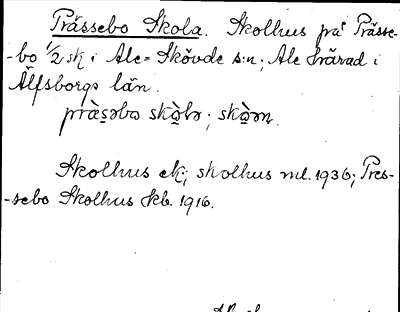 Prässebo Skola. Skolhus på Prässe-
-bo 1/2 sk i Ale-Skövde s:n; Ale härad i
Älfsborgs län.
præ̀s̱əbə skò̱lə; skò̱ən.
Skolhus ek; skolhus ml. 1936; Pres-
-sebo Skolhus Kb. 1916.